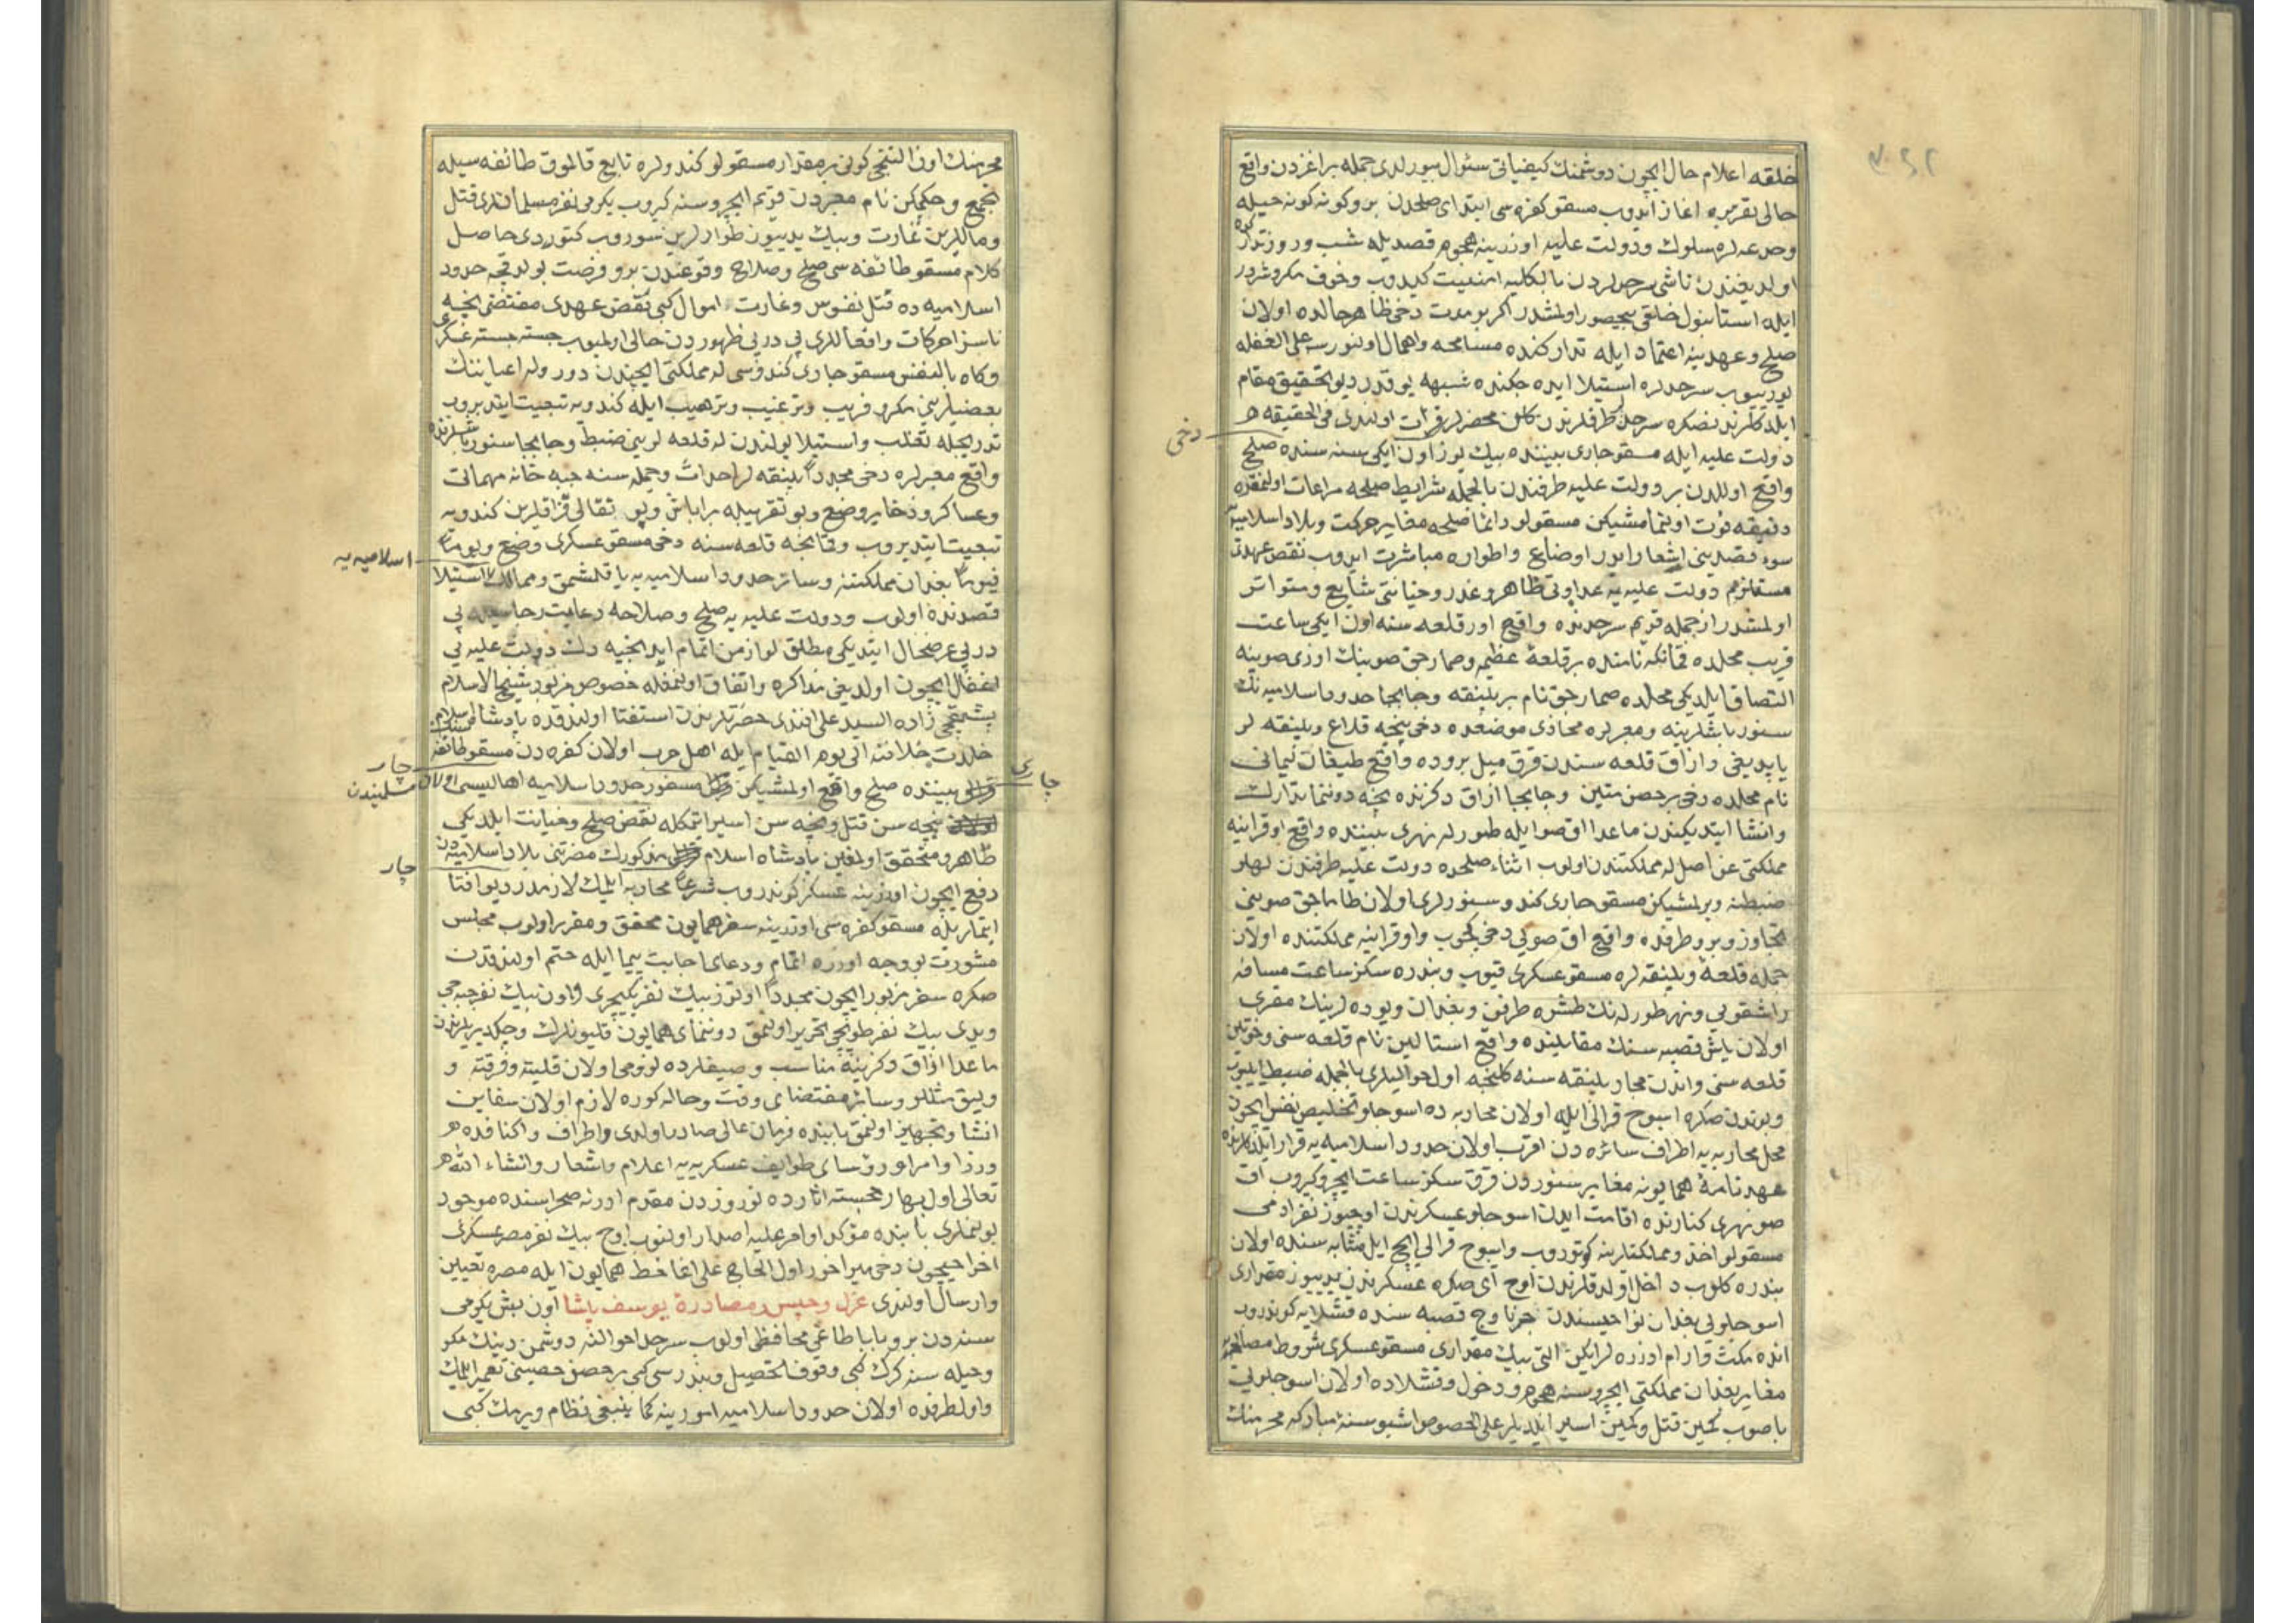 خلقه اعلام حال ایچون دوشمنك كیفیاتی سئوال بیورلدی جمله بر اغزدن واقع
حالی تقریره اغاز ایدوب مسقو كفره سی ابتدای صلحدن برو كونه كونه حیله
وخدعه لره سلوك ودولت علیه اوزرینه هجوم قصدیله شب وروز تداركده
اولدیغندن ناشی سرحدلردن بالكلیه امنیت كیدوب وخوف مكر وشرور
ایله استانبول خلقی بیحضور اولمشدر اكر بو مدت دخی ظاهر حالده اولان
صلح وعهدینه اعتماد ایله تداركنده مسامحه واهمال اولنورسه علی الغفله
یورییوب سرحدلره استیلا ایده جكنده شبهه یوقدر دیو تحقیق مقام
ایلدكلرندنصكره سرحد طرفلرندن كلن محضرلر قرائت اولندی فی الحقیقه
دخی
دولت علیه ایله مسقو چاری بیننده بیك یوز اون ایكی سنه سنده صلح
واقع اولدن برو دولت علیه طرفندن بالجمله شرایط صلحه مراعات اولنمقده
دقیقه فوت اولنمامشیكن مسقولو دائما صلحه مغایر حركت وبلاد اسلامیه
سوء قصدینی اشعار ایدر اوضاع واطواره مباشرت ایدوب نقض عهدی
مستلزم دولت علیه یه عداوتی ظاهر وغدر وخیانتی شایع ومتواتر
اولمشدر از جمله قریم سرحدنده واقع اور قلعه سنه اون ایكی ساعت
قریب محلده قمانكه نامنده بر قلعهٔ عظیمه وصمارجق صوینك اوزی صوینه
التصاق ایلدیكی محلده صمارجق نام بر پلنقه وجابجا حدود اسلامیه نك
سنور باشلرینه ومعبرلره محاذی موضعده دخی نیجه قلاع وپلنقه لر
یاپدیغی وازاق قلعه سندن قرق میل بروده واقع طیغان لیمانی
نام محلده دخی بر حصن متین وجابجا ازاق دكزنده نیجه دوننما تدارك
وانشا ایتدیكندن ماعدا اق صو ایله طورله نهری بیننده واقع اوقرانیه
مملكتی عن اصل له مملكتندن اولوب اثناء صلحده دولت علیه طرفندن لهلر
ضبطنه ویرلمشیكن مسقو چاری كندو سنورلری اولان طاماجق صوینی
تجاوز وبرو طرفده واقع اق صویی دخی كچوب واوقرانیه مملكتنده اولان
جمله قلعه وپلنقه لره مسقو عسكری قیوب وبندره سكز ساعت مسافه
راشقویی ونهر طورله نك طشره طرفن وبغدان ویوده لرینك مقری
اولان یاش قصبه سنك مقابلنده واقع استالین نام قلعه سنی وخوتین
قلعه سنی واندن مجار پلنقه سنه كلنجه اول حوالیلری بالجمله ضبط ایلیوب
وبوندن صكره اسوج قرالی ایله اولان محاربه ده اسوجلو تخلیص نفس ایچون
محل محاربه یه اطراف سائره دن اقرب اولان حدود اسلامیه یه قرار ایلدكلرنده
عهدنامهٔ همایونه مغایر سنوردن قرق سكز ساعت ایچرو كیروب اق
صو نهری كنارنده اقامت ایدن اسوجلو عسكرندن اوچیوز نفر ادمی
مسقولو اخذ ومملكتلرینه كوتوروب واسوج قرالی ایچ ایل مثابه سنده اولان
بندره كلوب داخل اولدقلرندن اوچ ای صكره عسكرندن یدییوز مقداری
اسوجلویی بغدان نواحیسندن چرناوچ قصبه سنده قشلایه كوندروب
انده مكث وارام اوزره لرایكن التی بیك مقداری مسقو عسكری شروط مصالحه یه
مغایر بغدان مملكتی ایچروسنه هجوم ودخول وقشلاده اولان اسوجلویی
باصوب كمین قتل وكمین اسیر ایلدیلر علی الخصوص اشبو سنهٔ مباركه محرمنك
محرمنك اون التنجی كونی بر مقدار مسقولو كندولره تابع قالموق طائفه سیله
تجمع وحكمكن نام معبردن قریم ایچروسنه كیروب یكرمی نفر مسلمانلری قتل
وماللرین غارت وبیك یدییوز طوارلرین سوروب كتوردی حاصل
كلام مسقو طائفه سی صلح وصلاح وقوعندن برو فرصت بولدقجه حدود
اسلامیه ده قتل نفوس وغارت اموال كبی نقض عهدی مقتضی نیجه
ناسزا حركات واقعاللری پی در پی ظهوردن خالی اولمیوب جسته جسته عسكری
وكاه بالنفس مسقو چاری كندوسی له مملكتی ایچندن دور وله اعیاننك
بعضیلرینی مكر وفریب وترغیب وترهیب ایله كندویه تبعیت ایتدیروب
تدریجیله تغلب واستیلا یولندن له قلعه لرینی ضبط وجابجا سنور باشلرنده
واقع معبرلره دخی مجددا پلنقه لر احداث وجمله سنه جبه خانه مهماتی
وعساكر وذخایر وضع وبو تقریبله براباش وپوتقالی قزاقلرین كندویه
تبعیت ایتدیروب وقمانیجه قلعه سنه دخی مسقو عسكری وضع ویوما
اسلامیه یه
فیوما بغدان مملكتنه وسائر حدود اسلامیه یه یاقلشمق وممالك استیلا
قصدنده اولوب ودولت علیه یه صلح وصلاحه رعایت رجاسیله پی
در پی عرضحال ایتدیكی مطلق لوازمن اتمام ایدنجیه دك دولت علیه یی
اغفال ایچون اولدیغی مذاكره واتفاق اولنمغله خصوص مزبور شیخ الاسلام
پشمقجی زاده السید علی افندی حضرتلرندن استفتا اولندقده پادشاه اسلام
خلدت خلافته الی یوم القیام ایله اهل حرب اولان كفره دن مسقو طائفه سنك
چار
چاری
بیننده صلح واقع اولمشیكن مسفور حدود اسلامیه اهالیسی اولان
مسلمیندن
نیجه سن قتل ونیجه سن اسیر ایتمكله نقض صلح وخیانت ایلدیكی
ظاهر ومتحقق اولمغین پادشاه اسلام مذكورك مضرتنی بلاد اسلامیه دن
چار
دفع ایچون اوزرینه عسكر كوندروب شرعا محاربه ایلمك لازمدر دیو افتا
ایتملریله مسقو كفره سی اوزرینه سفر همایون محقق ومقرر اولوب مجلس
مشورت بو وجه اوزره اتمام ودعای اجابت پیما ایله ختم اولندقدن
صكره سفر مزبور ایچون مجددا اوتوز بیك نفر یكیچری واون بیك نفر جبه جی
ویدی بیك نفر طوپجی تحریر اولنمق دوننمای همایون قلیونلرك وچكدیریلرندن
ماعدا ازاق دكزینه مناسب وصیغلرده لزومی اولان قلیته وفرقته و
وبیق مثللو وسائر مقتضای وقت وحاله كوره لازم اولان سفاین
انشا وتجهیز اولنمق بابنده فرمان عالی صادر اولدی واطراف واكنافده
وزرا وامرا ورؤسای طوایف عسكریه یه اعلام واشعار وانشاء الله
تعالی اول بهار خجسته اثارده نوروزدن مقدم ادرنه صحراسنده موجود
بولنملری بابنده مؤكد اوامر علیه اصدار اولنوب اوچ بیك نفر مصر عسكری
اخراجیچون دخی میراخور اول الحاج علی اغا خط همایون ایله مصره تعیین
وارسال اولندی عزل وحبس ومصادرهٔ یوسف پاشا اون بش یكرمی
سنه دن برو بابا طاغی محافظی اولوب سرحد احوالنه دوشمن دینك مكر
وحیله سنه كرك كبی وقوف تحصیل وبندر سی كبی بر حصن حصینی تعمیر ایلمك
واولطرفده اولان حدود اسلامیه امورینه كما ینبغی نظام ویرمك كبی